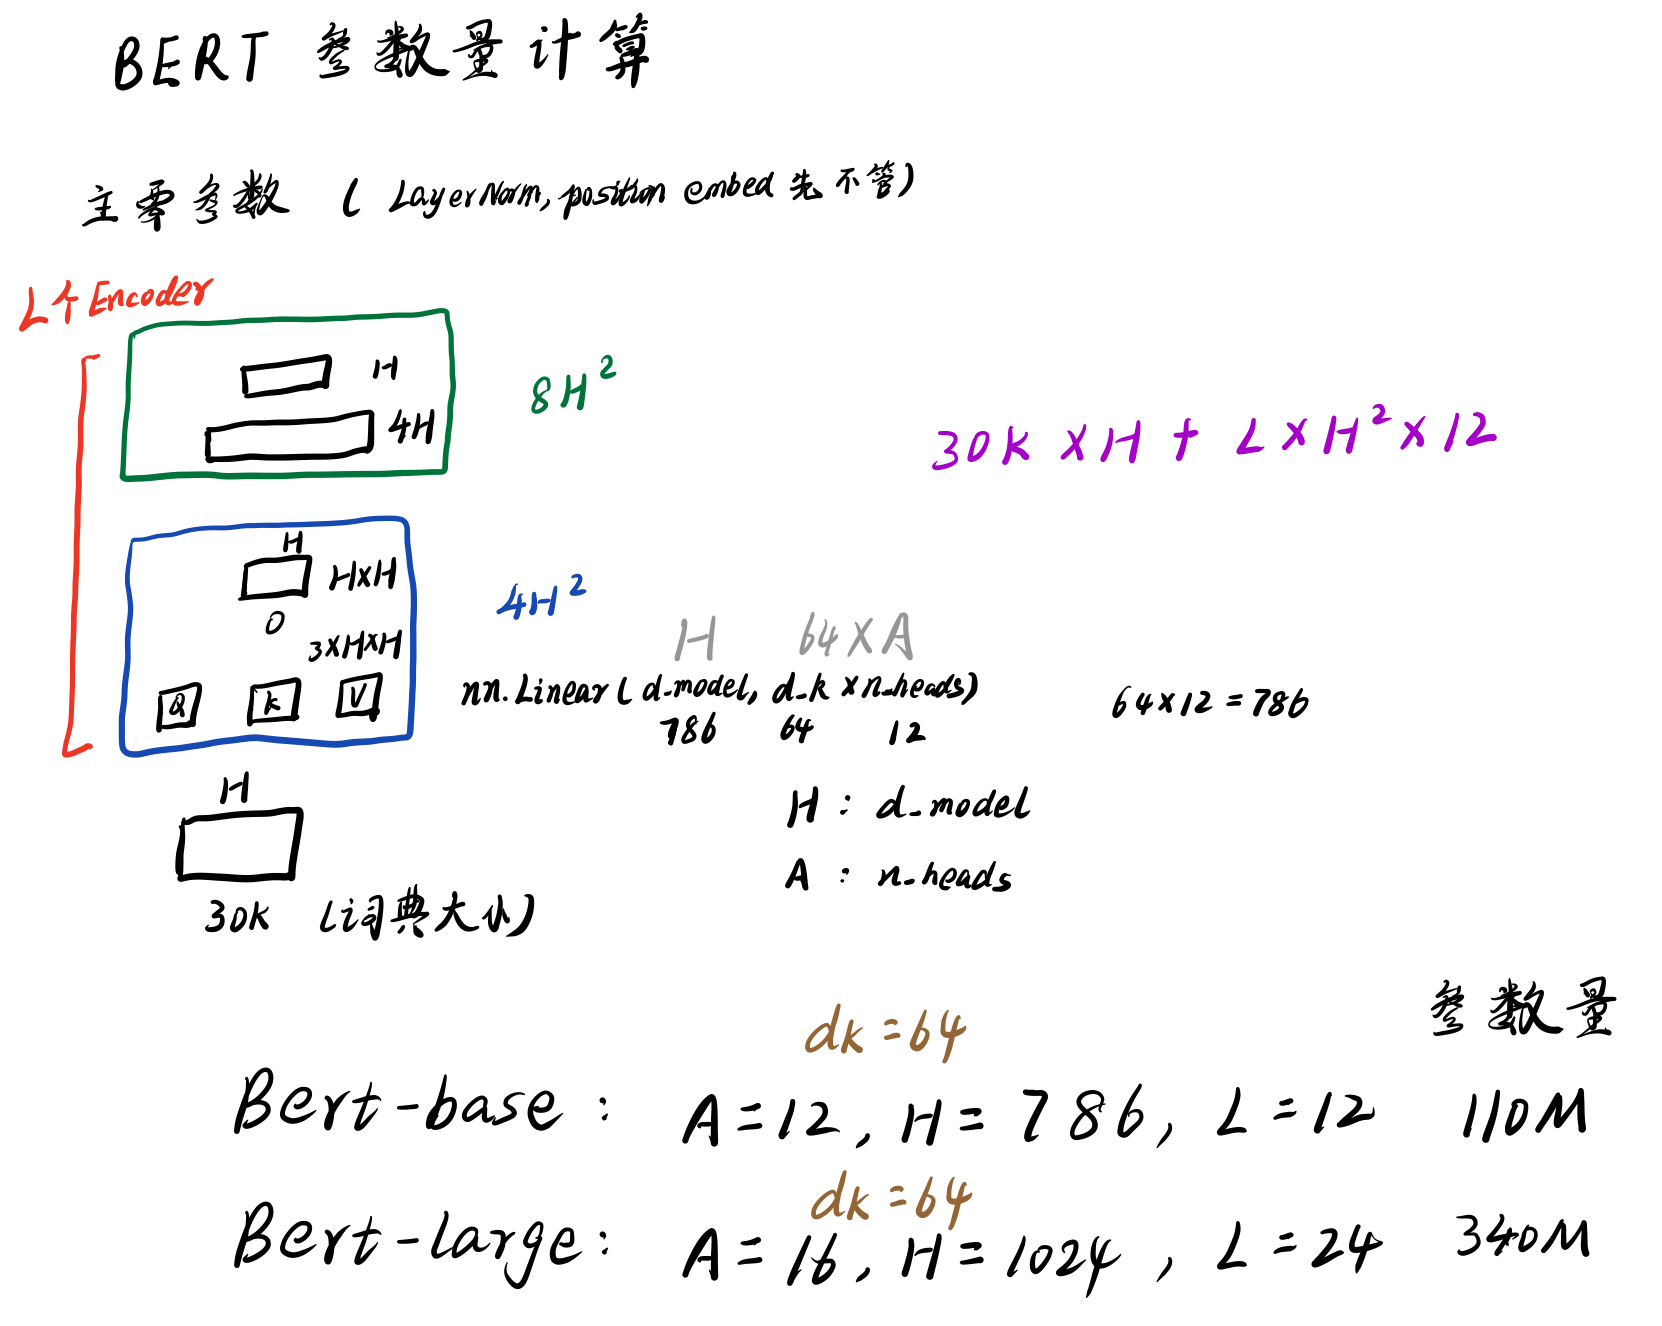 BERT 参数量计算
主零参数 ( LayerNorm, position embed 先不管)
L个Encoder
H
4H
8H²
30K × H + L × H² × 12
H
H×H
O
3×H×H
Q K V
4H²
H 64×A
nn.Linear( d_model, d_k × n_heads)
786 64 12
64×12=786
H
30K (词典大小)
H : d_model
A : n_heads
参数量
dk=64
Bert-base : A=12, H=786, L=12 110M
dk=64
Bert-large : A=16, H=1024, L=24 340M